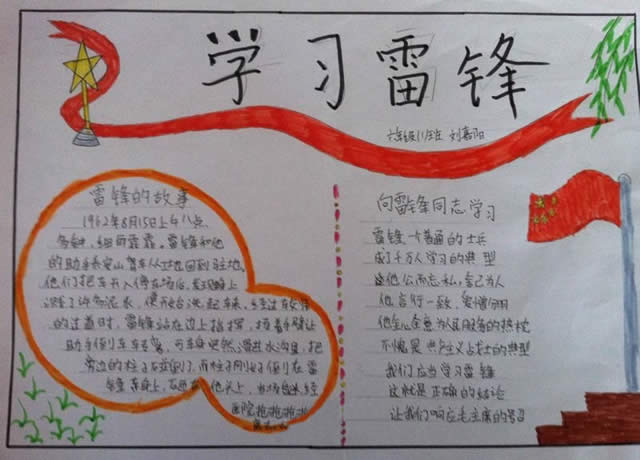 学习雷锋
六年级(1)班 刘嘉阳
雷锋的故事
1962年8月15日上午八点
多钟,细雨霏霏。雷锋和他
的助手乔安山驾车从工地回到驻地。
他们把车开入停车场后,发现车上
溅了许多泥水,便
的过道时,雷锋站在边上指挥,扬着手臂让
助手倒车车,可车突然滑进水沟里,把
旁边的柱子
医院抢抢抢救
向雷锋同志学习
雷锋一个普通的士兵
成了千万人学习的典型
他公而忘私,舍己为人
他言行一致,爱憎分明
他全心全意为人民服务的热忱
不愧是共产主义战士的典型
我们应当学习雷锋
这就是正确的结论
让我们响应毛主席的号召